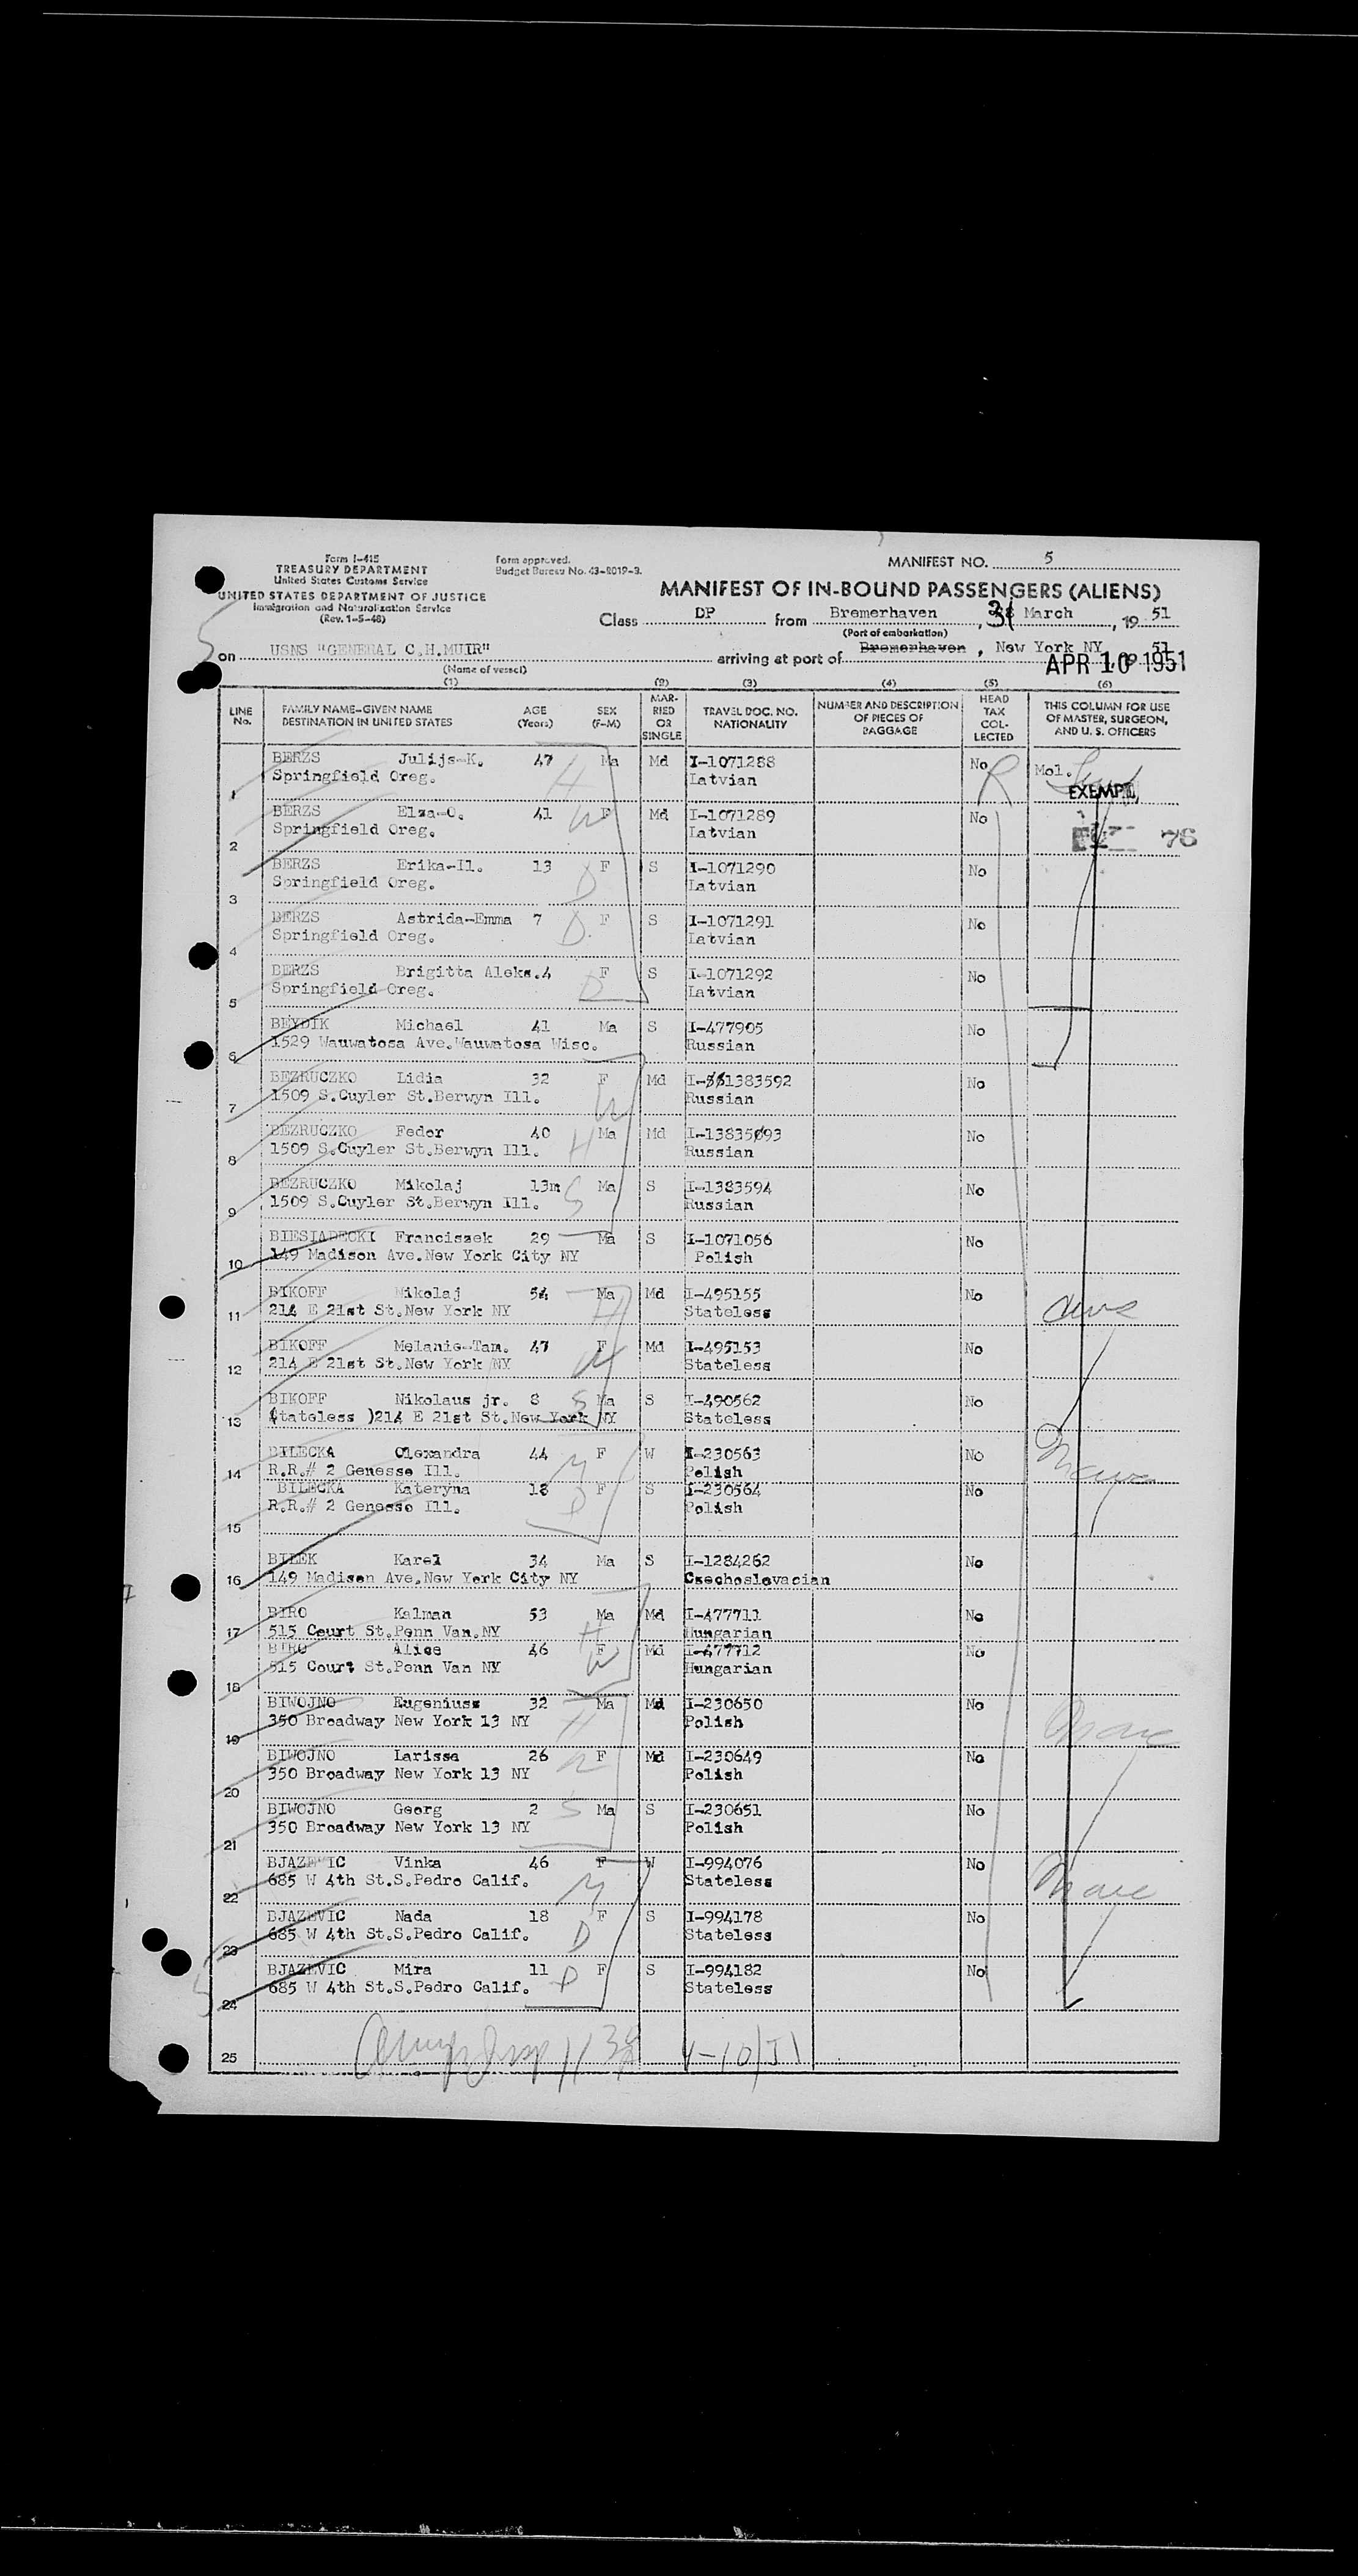 Form I-415
TREASURY DEPARTMENT
United States Customs Service
UNITED STATES DEPARTMENT OF JUSTICE
Immigration and Naturalization Service
(Rev. 1-5-48)
Form approved.
Budget Bureau No. 43-R019-3.
MANIFEST NO. 5
MANIFEST OF IN-BOUND PASSENGERS (ALIENS)
Class DP from Bremerhaven, 31 March, 1951
(Port of embarkation)
on USNS "GENERAL C.H.MUIR" arriving at port of Bremerhaven, New York NY 51
(Name of vessel)
APR 10 1951
(1) (2) (3) (4) (5) (6)
LINE No. FAMILY NAME-GIVEN NAME DESTINATION IN UNITED STATES AGE (Years) SEX (F-M) MARRIED OR SINGLE TRAVEL DOC. NO. NATIONALITY NUMBER AND DESCRIPTION OF PIECES OF BAGGAGE HEAD TAX COLLECTED THIS COLUMN FOR USE OF MASTER, SURGEON, AND U. S. OFFICERS
BERZS Julijs-K. 47 Ma Md I-1071288 No R Mol.
1 Springfield Oreg. H Latvian EXEMPT
BERZS Elza-O. 41 W F Md I-1071289 No
2 Springfield Oreg. Latvian 76
BERZS Erika-Il. 13 F S I-1071290 No
3 Springfield Oreg. D Latvian
BERZS Astrida-Emma 7 F S I-1071291 No
4 Springfield Oreg. D. Latvian
BERZS Brigitta Aleks. 4 F S I-1071292 No
5 Springfield Oreg. D Latvian
BEYDIK Michael 41 Ma S I-477905 No
6 1529 Wauwatosa Ave.Wauwatosa Wisc. Russian
BEZRUCZKO Lidia 32 F Md I-1383592 No
7 1509 S.Cuyler St.Berwyn Ill. W Russian
BEZRUCZKO Fedor 40 Ma Md I-1383593 No
8 1509 S.Cuyler St.Berwyn Ill. H Russian
BEZRUCZKO Mikolaj 13m Ma S I-1383594 No
9 1509 S.Cuyler St.Berwyn Ill. S Russian
BIESIADECKI Franciszek 29 Ma S I-1071056 No
10 149 Madison Ave.New York City NY Polish
BIKOFF Nikolaj 54 Ma Md I-495155 No
11 214 E 21st St.New York NY H Stateless
BIKOFF Melanie-Tam. 47 F Md I-495153 No
12 214 E 21st St.New York NY W Stateless
BIKOFF Nikolaus jr. 8 S Ma S I-490562 No
13 (tateless )214 E 21st St.New York NY Stateless
BILECKA Olexandra 44 F W I-230563 No
14 R.R.# 2 Genesse Ill. M Polish
BILECKA Kateryna 18 F S I-230564 No
15 R.R.# 2 Genesse Ill. D Polish
BILEK Karel 34 Ma S I-1284262 No
16 149 Madison Ave.New York City NY Czechoslovacian
BIRO Kalman 53 Ma Md I-477711 No
17 515 Court St.Penn Van.NY H Hungarian
BIRO Alice 46 F Md I-477712 No
18 515 Court St.Penn Van NY W Hungarian
BIWOJNO Eugeniusz 32 Ma Md I-230650 No
19 350 Broadway New York 13 NY H Polish
BIWOJNO Larissa 26 F Md I-230649 No
20 350 Broadway New York 13 NY W Polish
BIWOJNO Georg 2 S Ma S I-230651 No
21 350 Broadway New York 13 NY Polish
BJAZEVIC Vinka 46 F W I-994076 No
22 685 W 4th St.S.Pedro Calif. M Stateless
BJAZEVIC Nada 18 F S I-994178 No
23 685 W 4th St.S.Pedro Calif. D Stateless
BJAZEVIC Mira 11 F S I-994182 No
24 685 W 4th St.S.Pedro Calif. D Stateless
25 4-10/51